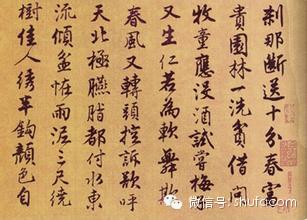 刹那斷送十分春富
貴園林一洗貧借問
牧童應没酒試嘗梅
又生仁若為軟舞欺
春風又轉頭控訴欲呼
天北極臙脂都付水東
流傾盆怪雨泥三尺繞
樹佳人繡半鉤顏色自
微信号: shufacn